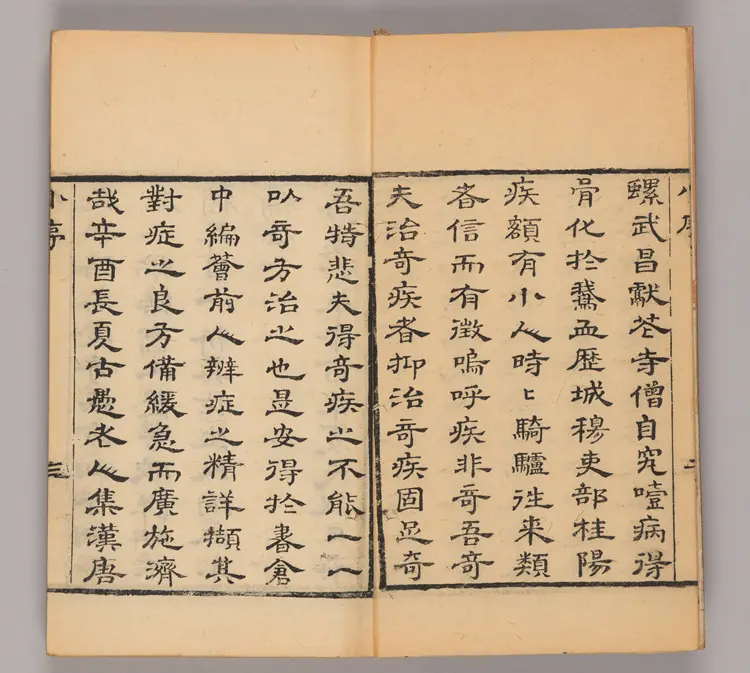 小序
螺武昌獻花寺僧自究噎病得
骨化於鵞血歷城穆吏部桂陽
疾額有小人時〻騎驢徃来類
吝信而有徵嗚呼疾非奇吾奇
夫治奇疾者抑治奇疾固足奇
吾特悲夫得奇疾㞢不能一一
㕥奇方治㞢也是安得於書倉
中編薈前人辨症㞢精詳擷其
對症㞢良方備緩急而廣施濟
哉辛酉長夏古愚老人集漢唐
小序
三